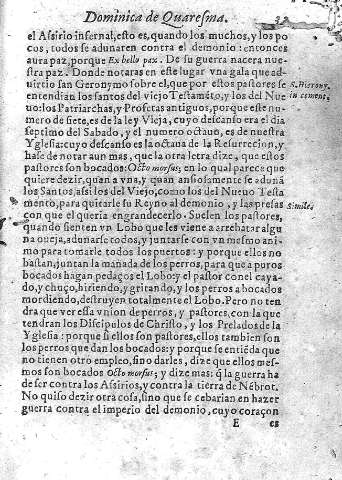 Dominica de Quaresma.
el Assirio infernal, esto es, quando los muchos, y los po
cos, todos se adunaren contra el demonio: entonces
aura paz, porque Ex bello pax. De su guerra nacera nues
tra paz. Donde notaras en este lugar vna gala que ad-
uirtio san Geronymo sobre el, que por estos pastores se
S. Hierony.
entendian los santos del viejo Testamẽto, y los del Nue
in coment.
uo: los Patriarchas, y Profetas antiguos, porque este nu-
mero de siete, es de la ley Vieja, cuyo descanso era el dia
septimo del Sabado, y el numero octauo, es de nuestra
Yglesia: cuyo descanso es la octaua de la Resurreccion, y
hase de notar aun mas, que la otra letra dize, que estos
pastores son bocados: Octo morsus; en lo qual parece que
quiere dezir, quan a vna, y quan ansiosmente se adunã
los Santos, assi los del Viejo, como los del Nueuo Testa
mento, para quitarle su Reyno al demonio, y las presas
Simile.
con que el queria engrandecerlo. Suelen los pastores,
quando sienten vn Lobo que les viene a arrebatar algu
na oueja, adunarse todos, y juntarse con vn mesmo ani-
mo para tomarle todos los puertos: y porque ellos no
bastan, juntan la mañada de los perros, para que a puros
bocados hagan pedaços el Lobo: y el pastor con el caya-
do, y chuço, hiriendo, y gritando, y los perros a bocados
mordiendo, destruyen totalmente el Lobo. Pero no ten
dra que ver essa vnion de perros, y pastores, con la que
tendran los Discipolos de Christo, y los Prelados de la
Yglesia: porque si ellos son pastores, ellos tambien son
los perros que dan los bocados: y porque se entiẽda que
no tienen otro empleo, sino darles, dize que ellos mes-
mos son bocados Octo morsus; y dize mas: q̃ la guerra ha
de ser contra los Assirios, y contra la tierra de Nebrot.
No quiso dezir otra cosa, sino que se cebarian en hazer
guerra contra el imperio del demonio, cuyo coraçon
E
es